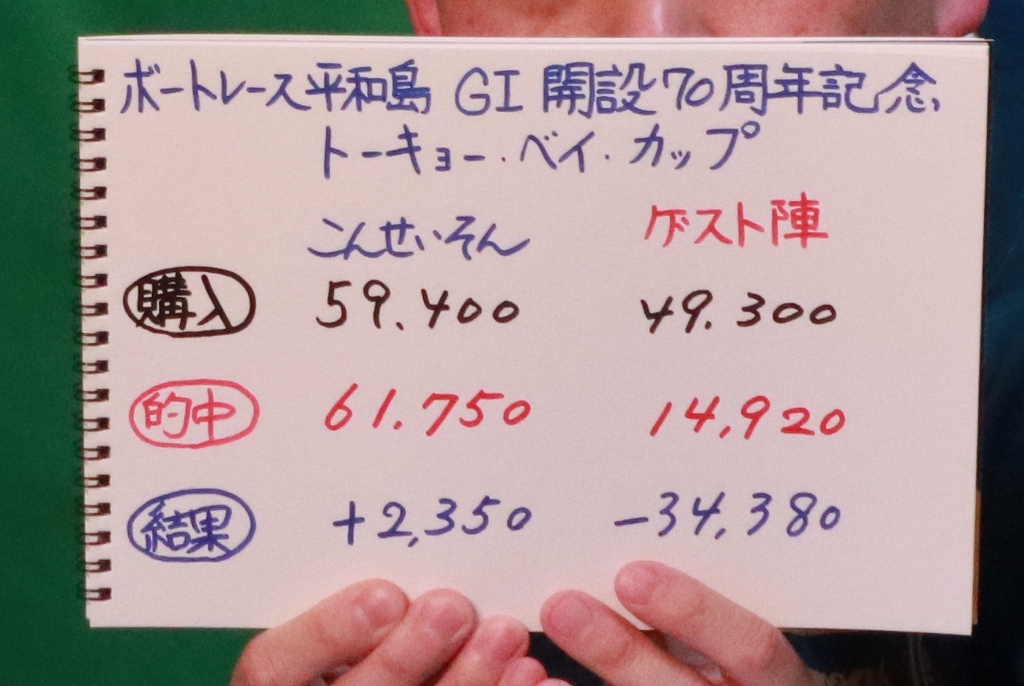 ボートレース平和島 GI 開設70周年記念
トーキョー・ベイ・カップ
こんせいそん ゲスト陣
購入 59.400 49.300
的中 61.750 14,920
結果 +2,350 -34,380